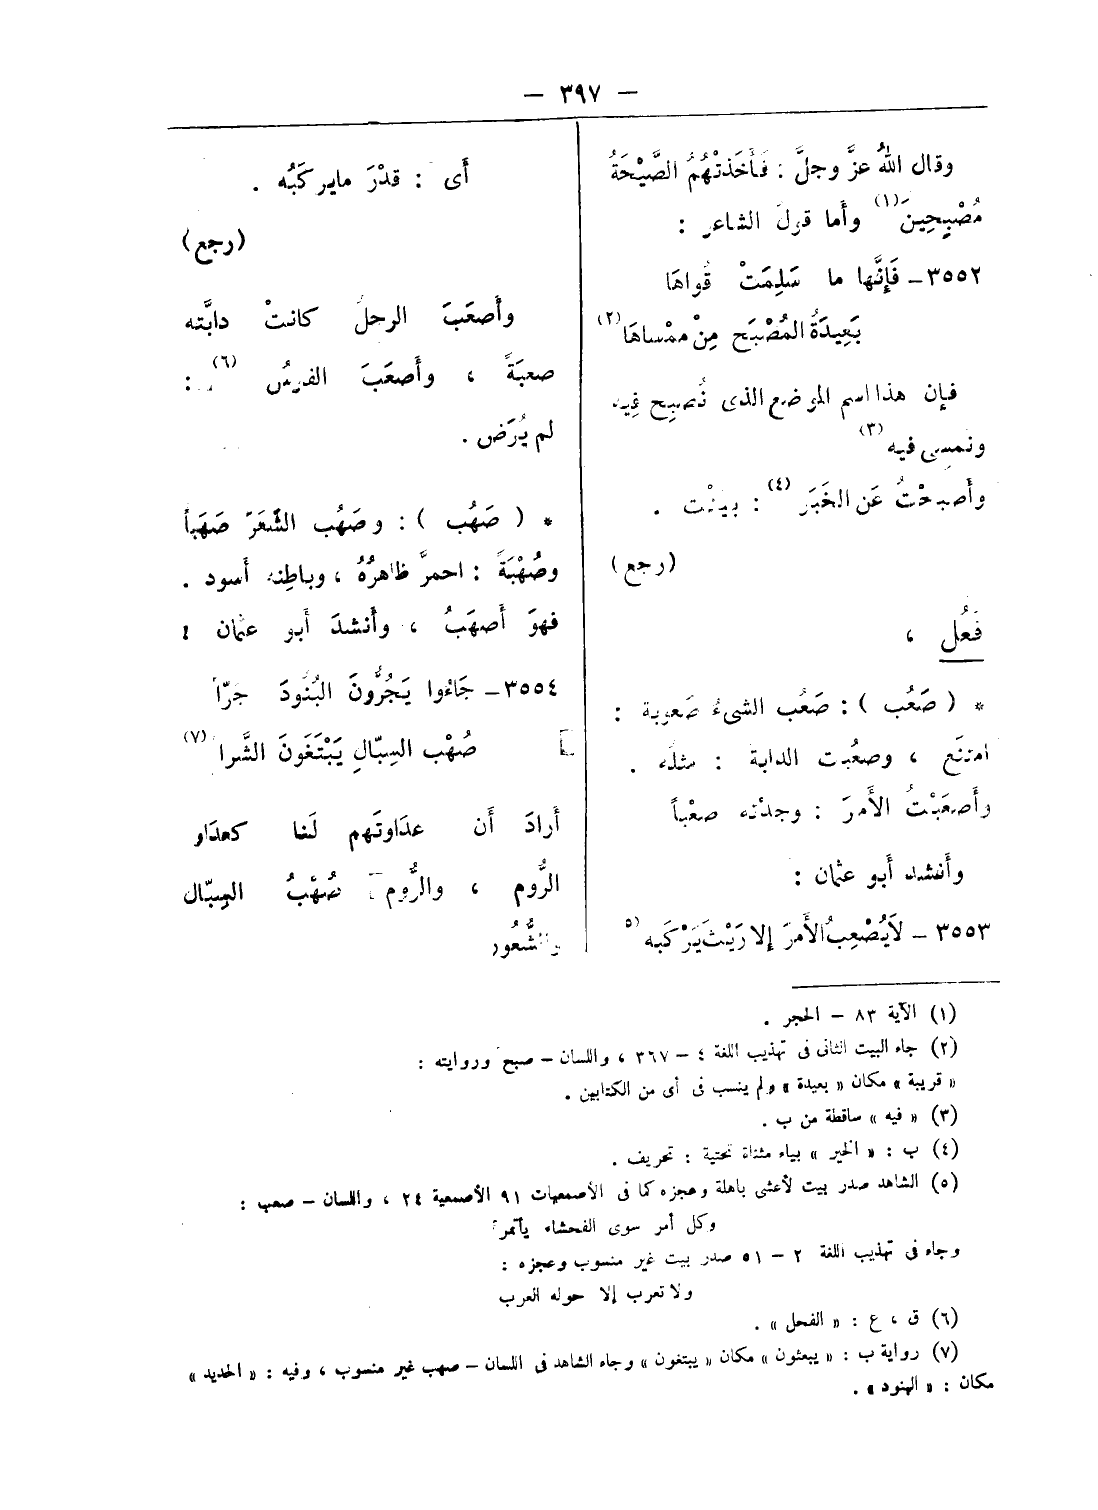 — ٣٩٧ —
وقال اللهُ عزَّ وجلَّ : فَأَخَذتْهُمُ الصَّيْحَةُ
مُصْبِحِينَ (١) وأما قولَ الشاعر :
٣٥٥٢ – فَإِنَّها ما سَلِمَتْ قُواهَا
بَعِيدَةُ المُصْبَح مِنْ ممْساهَا (٢)
فإن هذا اسم الموضع الذى نُصبِح فِيه
ونمسِى فيه (٣)
وأصبحْتُ عَن الخَبَر (٤) : بينْت .
(رجع)
فَعُل ،
* ( صَعُب ) : صَعُب الشىءُ صَعوبة :
امتنَع ، وصعُبت الدابة : مثله .
وأَصعَبْتُ الأَمرَ : وجدْته صعْباً
وأَنشد أَبو عثمان :
٣٥٥٣ – لَايُصْعِبُ الأَمرَ إِلا رَيْثَ يَرْكَبه (٥
أَى : قدْرَ مايركَبُه .
(رجع)
وأَصعَبَ الرجلُ كانتْ دابَّته
صعبَةً ، وأَصعَبَ الفرسُ (٦) :
لم يُرَض .
* ( صَهُب ) : وصَهُب الشَّعَرَ صَهَباً
وصُهْبَةً : احمرَّ ظاهرُهُ ، وباطِنه أَسود .
فهوَ أَصهَبُ ، وأَنشدَ أَبو عثمان :
٣٥٥٤ – جَاءُوا يَجُرُّونَ البُنُودَ جَرّا
صُهْب السِبّالِ يَبْتَغَونَ الشَّرا (٧)
أَرادَ أَن عدَاوتَهم لَنا كعدَاو
الرُّوم ، والرُّوم صُهْبُ السِبّال
والشُّعُور
(١) الآية ٨٣ – الحجر .
(٢) جاء البيت الثانى فى تهذيب اللغة ٤ – ٣٦٧ ، واللسان – صبح وروايته :
« قريبة » مكان « بعيدة » ولم ينسب فى أى من الكتابين .
(٣) « فيه » ساقطة من ب .
(٤) ب : « الخير » بياء مثناة تحتية : تحريف .
(٥) الشاهد صدر بيت لأعشى باهلة وعجزه كما فى الأصمعيات ٩١ الأصمعية ٢٤ ، واللسان – صعب :
وكل أمر سوى الفحشاء يأتمر
وجاء فى تهذيب اللغة ٢ – ٥١ صدر بيت غير منسوب وعجزه :
ولا تعرب إلا حوله العرب
(٦) ق ، ع : « الفحل » .
(٧) رواية ب : « يبعثون » مكان « يبتغون » وجاء الشاهد فى اللسان – صهب غير منسوب ، وفيه : « الحديد »
مكان : « البنود » .